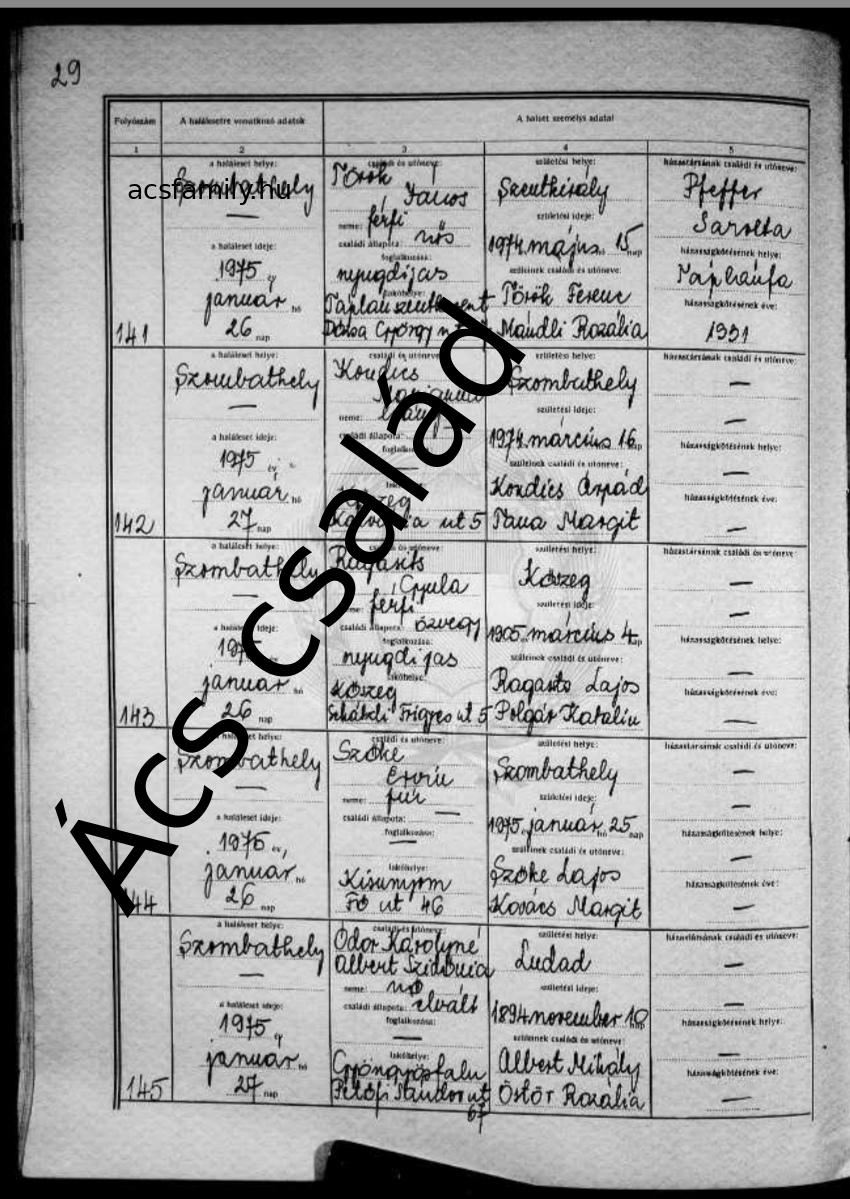 29
Folyószám
A halálesetre vonatkozó adatok
A halott személyi adatai
1
2
3
4
5
141
a haláleset helye:
Szombathely
acsfamily.hu
a haláleset ideje:
1975 év
január hó
26 nap
családi és utóneve:
Török
János
neme: férfi
családi állapota: nős
foglalkozása:
nyugdíjas
lakóhelye:
Táplánszentkereszt
Dózsa György u
születési helye:
Szentkirály
születési ideje:
1974 május hó 15 nap
szüleinek családi és utóneve:
Török Ferenc
Mandli Rozália
házastársának családi és utóneve:
Pfeffer
Sarolta
házasságkötésének helye:
Táplánfa
házasságkötésének éve:
1931
142
a haláleset helye:
Szombathely
—
a haláleset ideje:
1975 év
január hó
27 nap
családi és utóneve:
Kondics
Marianna
neme: leány
családi állapota:
foglalkozása:
—
Kőszeg
ut 5
születési helye:
Szombathely
születési ideje:
1974 március 16 nap
szüleinek családi és utóneve:
Kondics Árpád
Tana Margit
házastársának családi és utóneve:
—
—
házasságkötésének helye:
—
házasságkötésének éve:
—
143
a haláleset helye:
Szombathely
—
a haláleset ideje:
1975 év
január hó
26 nap
családi és utóneve:
Ragasits
Gyula
neme: férfi
családi állapota: özvegy
foglalkozása:
nyugdíjas
lakóhelye:
Kőszeg
Frigyes ut 5
születési helye:
Kőszeg
születési ideje:
1905 március 4 nap
szüleinek családi és utóneve:
Ragasits Lajos
Polgár Katalin
házastársának családi és utóneve:
—
—
házasságkötésének helye:
—
házasságkötésének éve:
—
144
a haláleset helye:
Szombathely
—
a haláleset ideje:
1975 év
január hó
26 nap
családi és utóneve:
Szőke
Ervin
neme: fiú
családi állapota: —
foglalkozása:
—
lakóhelye:
Kisunyom
Fő ut 46
születési helye:
Szombathely
születési ideje:
1975 január hó 25 nap
szüleinek családi és utóneve:
Szőke Lajos
Kovács Margit
házastársának családi és utóneve:
—
—
házasságkötésének helye:
—
házasságkötésének éve:
—
145
a haláleset helye:
Szombathely
—
a haláleset ideje:
1975 év
január hó
27 nap
családi és utóneve:
Ódor Károlyné
Albert Szidónia
neme: nő
családi állapota: elvált
foglalkozása:
—
lakóhelye:
Gyöngyösfalu
Petőfi Sándor ut
67
születési helye:
Ludad
születési ideje:
1894 november 10 nap
szüleinek családi és utóneve:
Albert Mihály
Östör Rozália
házastársának családi és utóneve:
—
—
házasságkötésének helye:
—
házasságkötésének éve:
—
Ács család